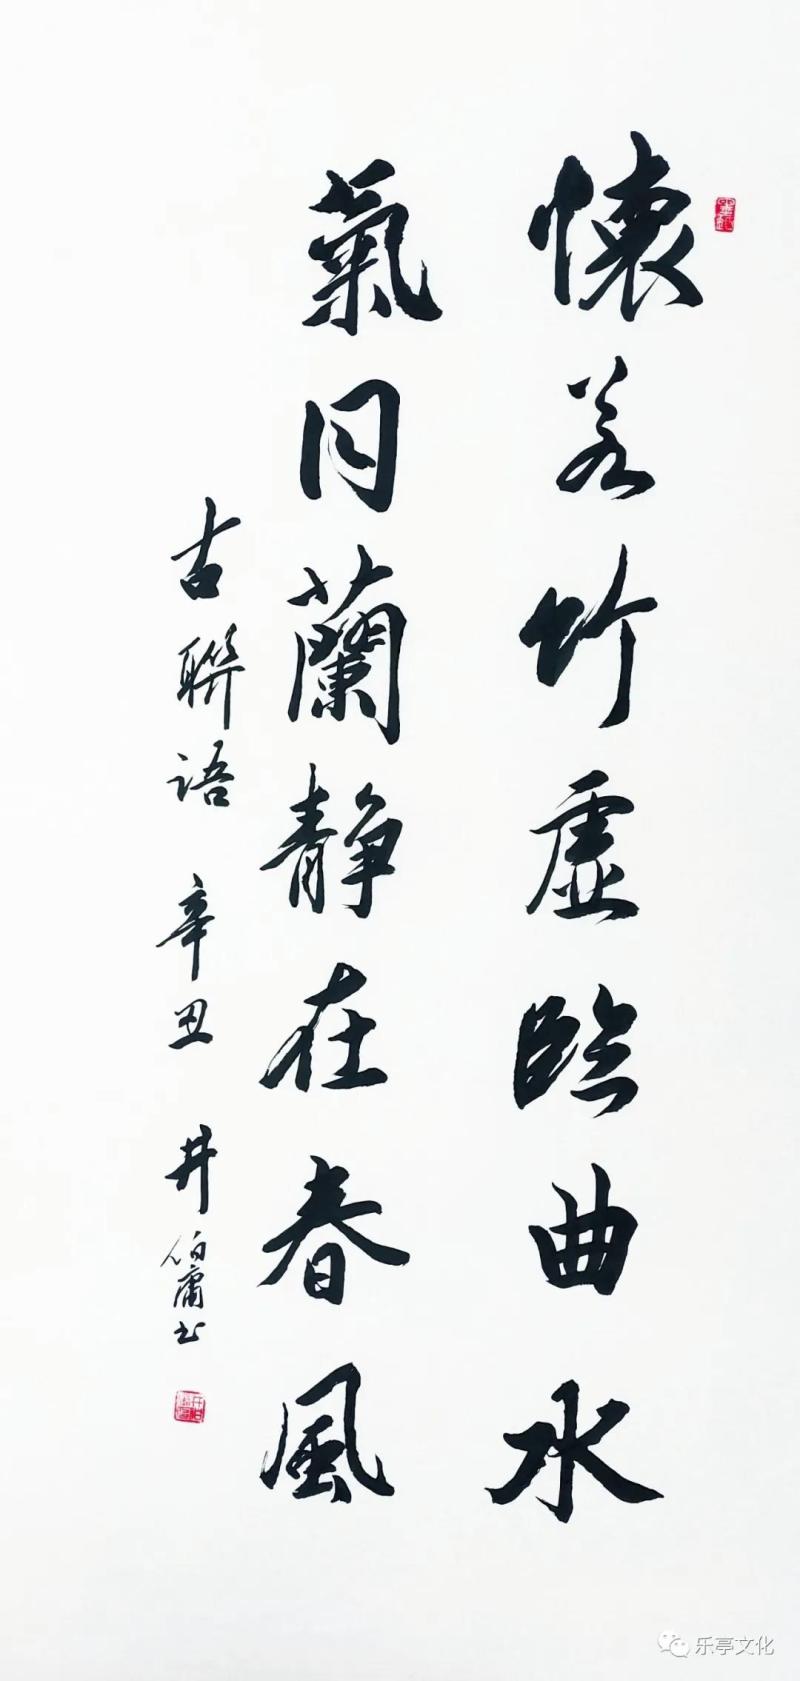 懷若竹虛臨曲水
氣同蘭靜在春風
古聯語 辛丑 井伯庸书
乐亭文化